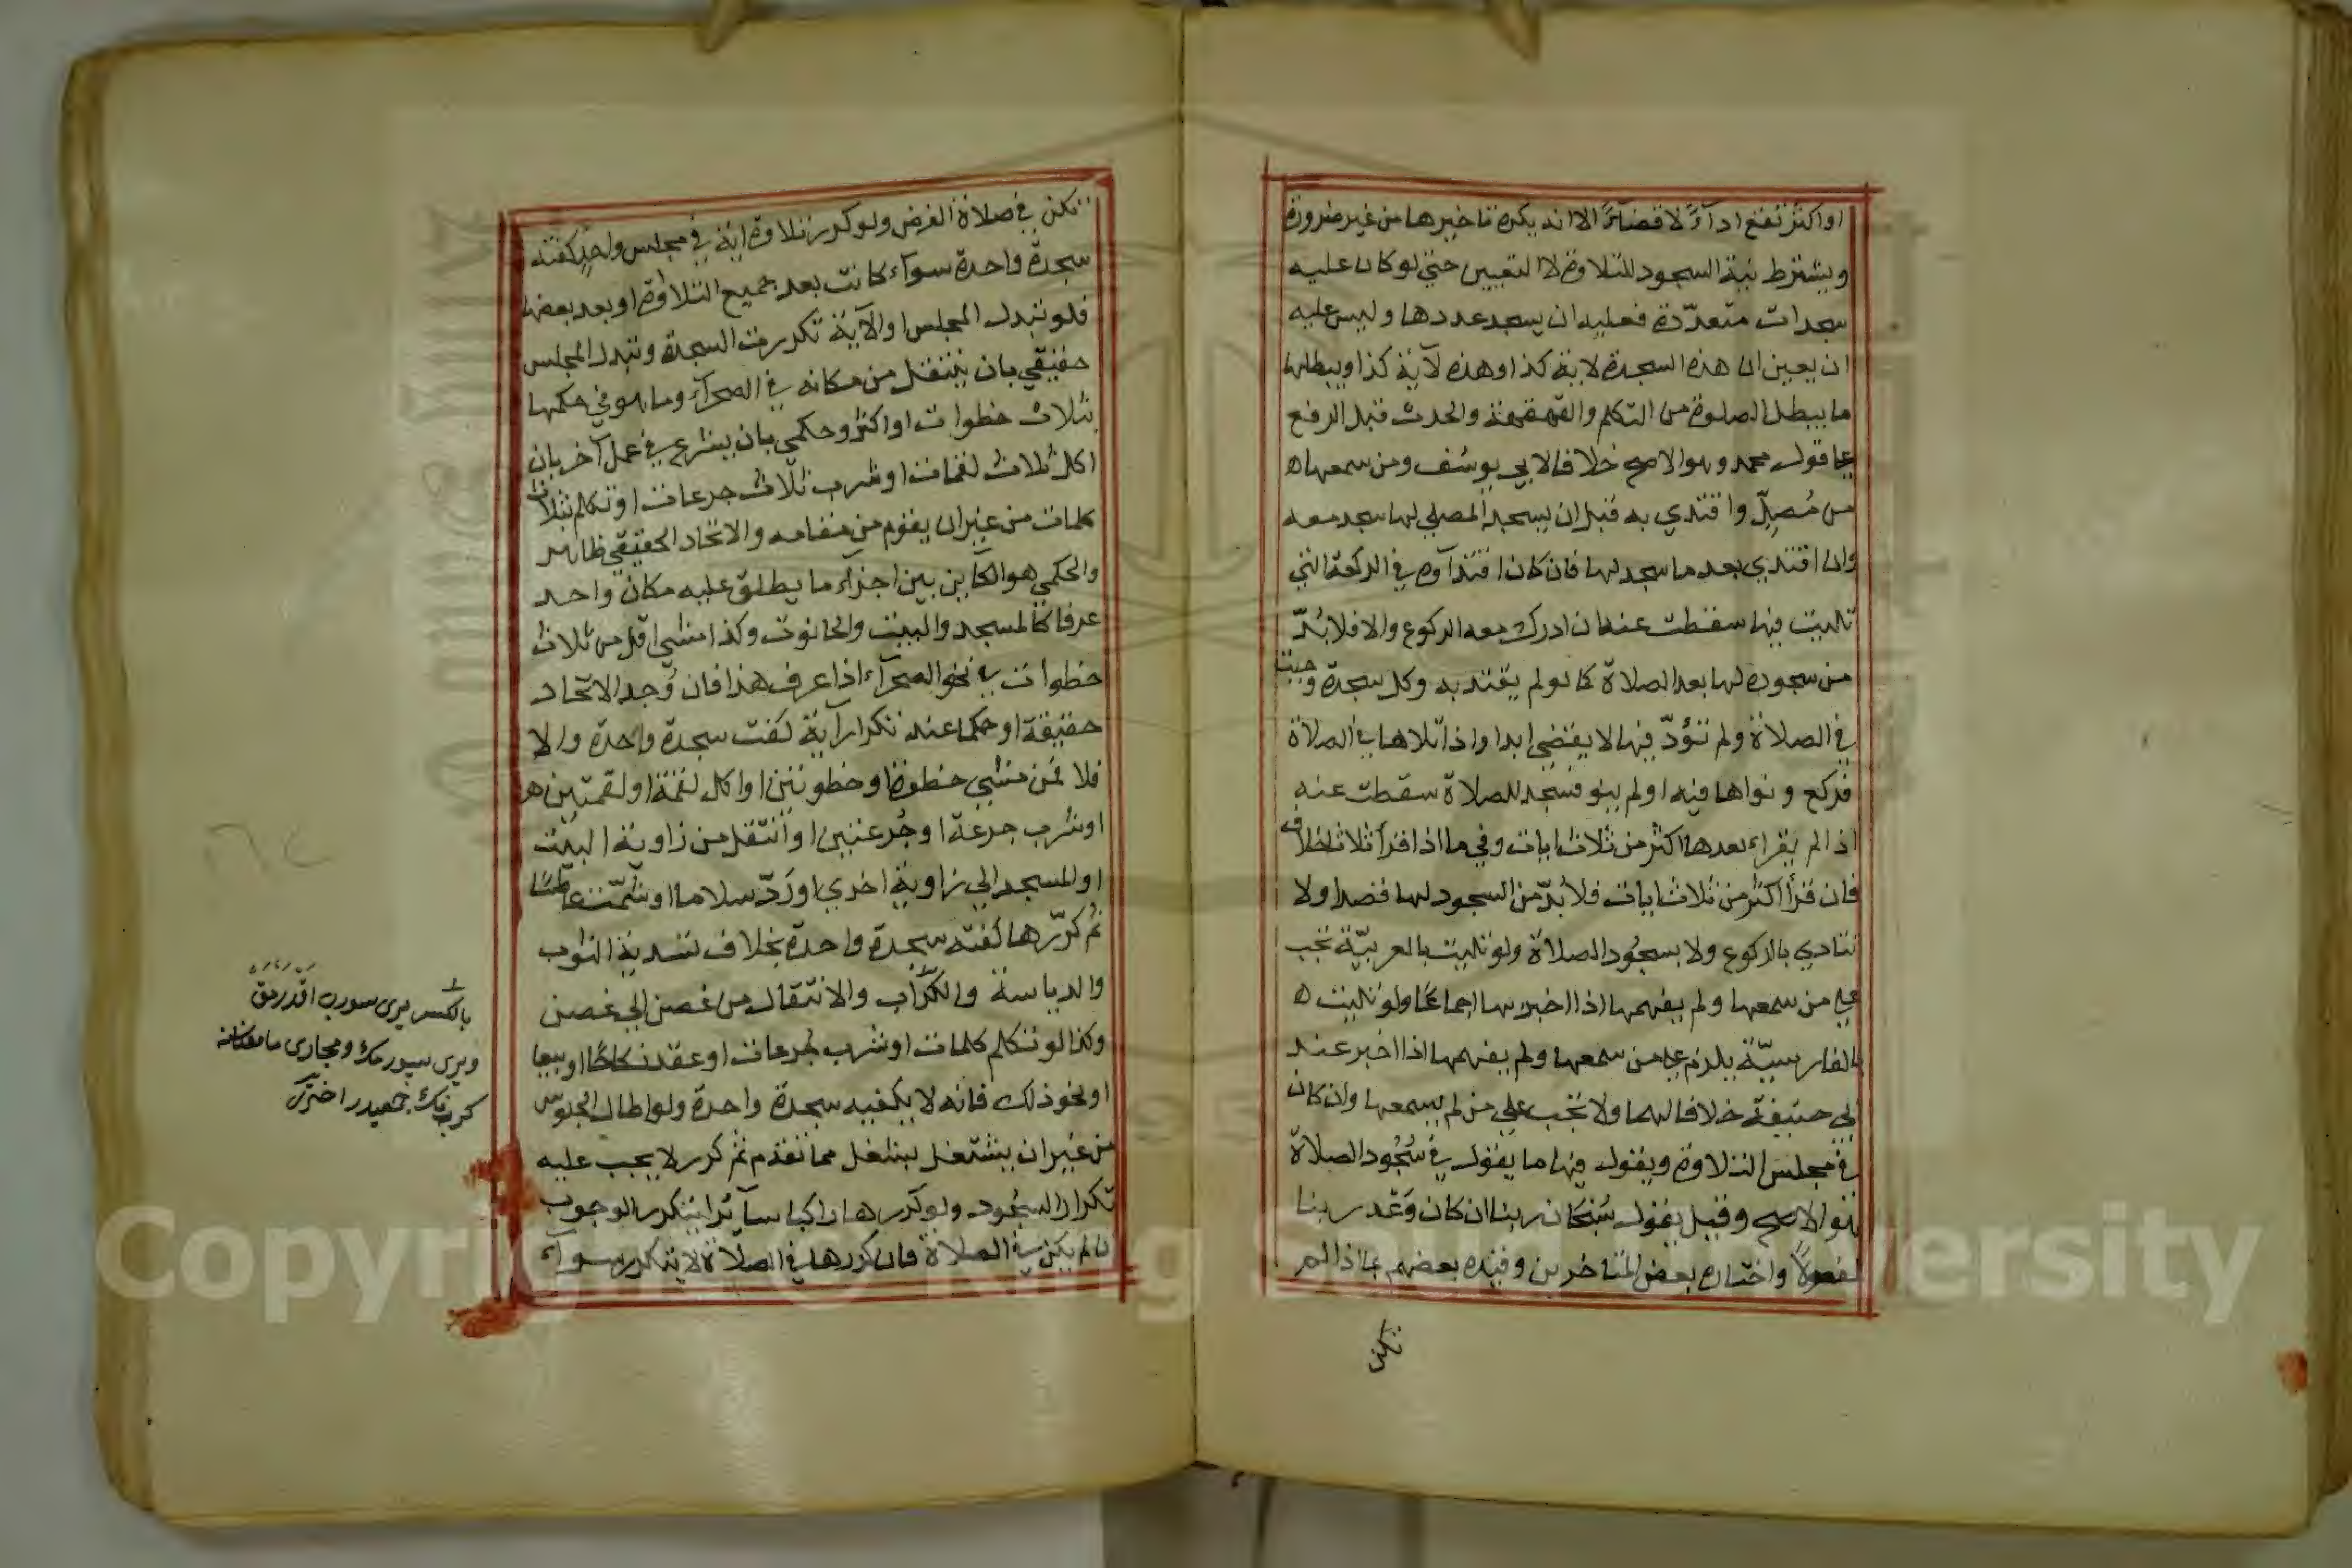 او اكثر تقع ادآءً لا قضآءً الا انه يكره تاخيرها من غير ضرورة
ويشترط نية السجود للتلاوة لا التعيين حتى لو كان عليه
سجدات متعدّدة فعليه ان يسجد عددها وليس عليه
ان يعين ان هذه السجدة لاية كذا وهذه لآية كذا ويبطلها
ما يبطل الصلوة من التكلم والقهقهة والحدث قبل الرفع
على قول محمد وهو الاصح خلافا لابي يوسُف ومن سمعها
من مُصلٍّ واقتدي به قبل ان يسجد المصلي لها سجد معه
وان اقتدي بعد ما سجد لها فان كان اقتدآوه في الركعة التي
تليت فيها سقطت عنه ان ادرك معه الركوع والا فلا بُدّ
من سجوده لها بعد الصلاة كما لو لم يقتد به وكل سجدة وجبت
في الصلاة ولم تؤدّ فيها لا يقضي ابدا واذا تلاها في الصلاة
فركع ونواها فيه او لم ينو فسجد للصلاة سقطت عنه
اذا لم يقراء بعدها اكثر من ثلاث ايات وفي ما اذا قرأ ثلاثا خلاف
فان قرأ اكثر من ثلاث ايات فلا بُدّ من السجود لها قصدا ولا
تتادي بالركوع ولا بسجُود الصلاة ولو تليت بالعربيّة تجب
على من سمعها ولم يفهمها اذا اخبر بها اجماعًا ولو تليت
بالفارسيّة يلزم على من سمعها ولم يفهمها اذا اخبر عند
ابي حنيفة خلافا لهما ولا تجب على من لم يسمعها وان كان
في مجلس التلاوة ويقول فيها ما يقول في سُجُود الصلاة
هو الاصح وقيل يقول سُبْحَان ربنا ان كان وَعْد ربنا
لمفعولاً واختاره بعض المتاخرين وقيّده بعضهم بما اذا لم
تكن
تكن في صلاة الفرض ولو كرر تلاوة اية في مجلس واحدٍ كفته
سجدة واحدة سوآء كانت بعد جميع التلاوة او بعد بعضها
فلو تبدل المجلس او الآية تكررت السجدة وتبدل المجلس
حقيقي بان ينتقل من مكانه في الصحرآء وما هو في حكمها
بثلاث خطوات او اكثر وحكمي بان يشرع في عمل آخر بان
اكل ثلاث لقمات او شرب ثلاث جرعات او تكلم بثلاث
كلمات من غير ان يقوم من مقامه والاتحاد الحقيقي ظاهر
والحكمي هو الكآين بين اجزآء ما يطلق عليه مكان واحد
عرفا كالمسجد والبيت والحانوت وكذا مشي اقل من ثلاث
خطوات في نحو الصحرآء اذا عرف هذا فان وُجد الاتحاد
حقيقة او حكما عند تكرار آية كفت سجدة واحدة والا
فلا فمن مشي خطوة او خطوتين او اكل لقمة او لقمتين
او شرب جرعة او جُرعتين او انتقل من زاوية البيت
او المسجد الي زاوية اخري او رَدّ سلاما او شمّت عاطسًا
ثم كرّرها كفته سجدة واحدة بخلاف تسدية الثوب
والدياسة والكرّاب والانتقال من غصن الي غصن
وكذا لو تكلم كلمات او شرب جُرعات او عقد نكاحًا او بيعا
او نحو ذلك فانه لا يكفيه سجدة واحدة ولو اطال الجلوس
من غير ان يشتغل بشغل مما تقدم ثم كرر لا يجب عليه
تكرار السجُود ولو كررها راكبا سآئرا يتكرر الوجوب
ان لم يكن في الصلاة فان كررها في الصلاة لا يتكرر سوآء
بالكسر يرى سورب اقدرمق
ويرى سپورمك ومجارى
اخترى